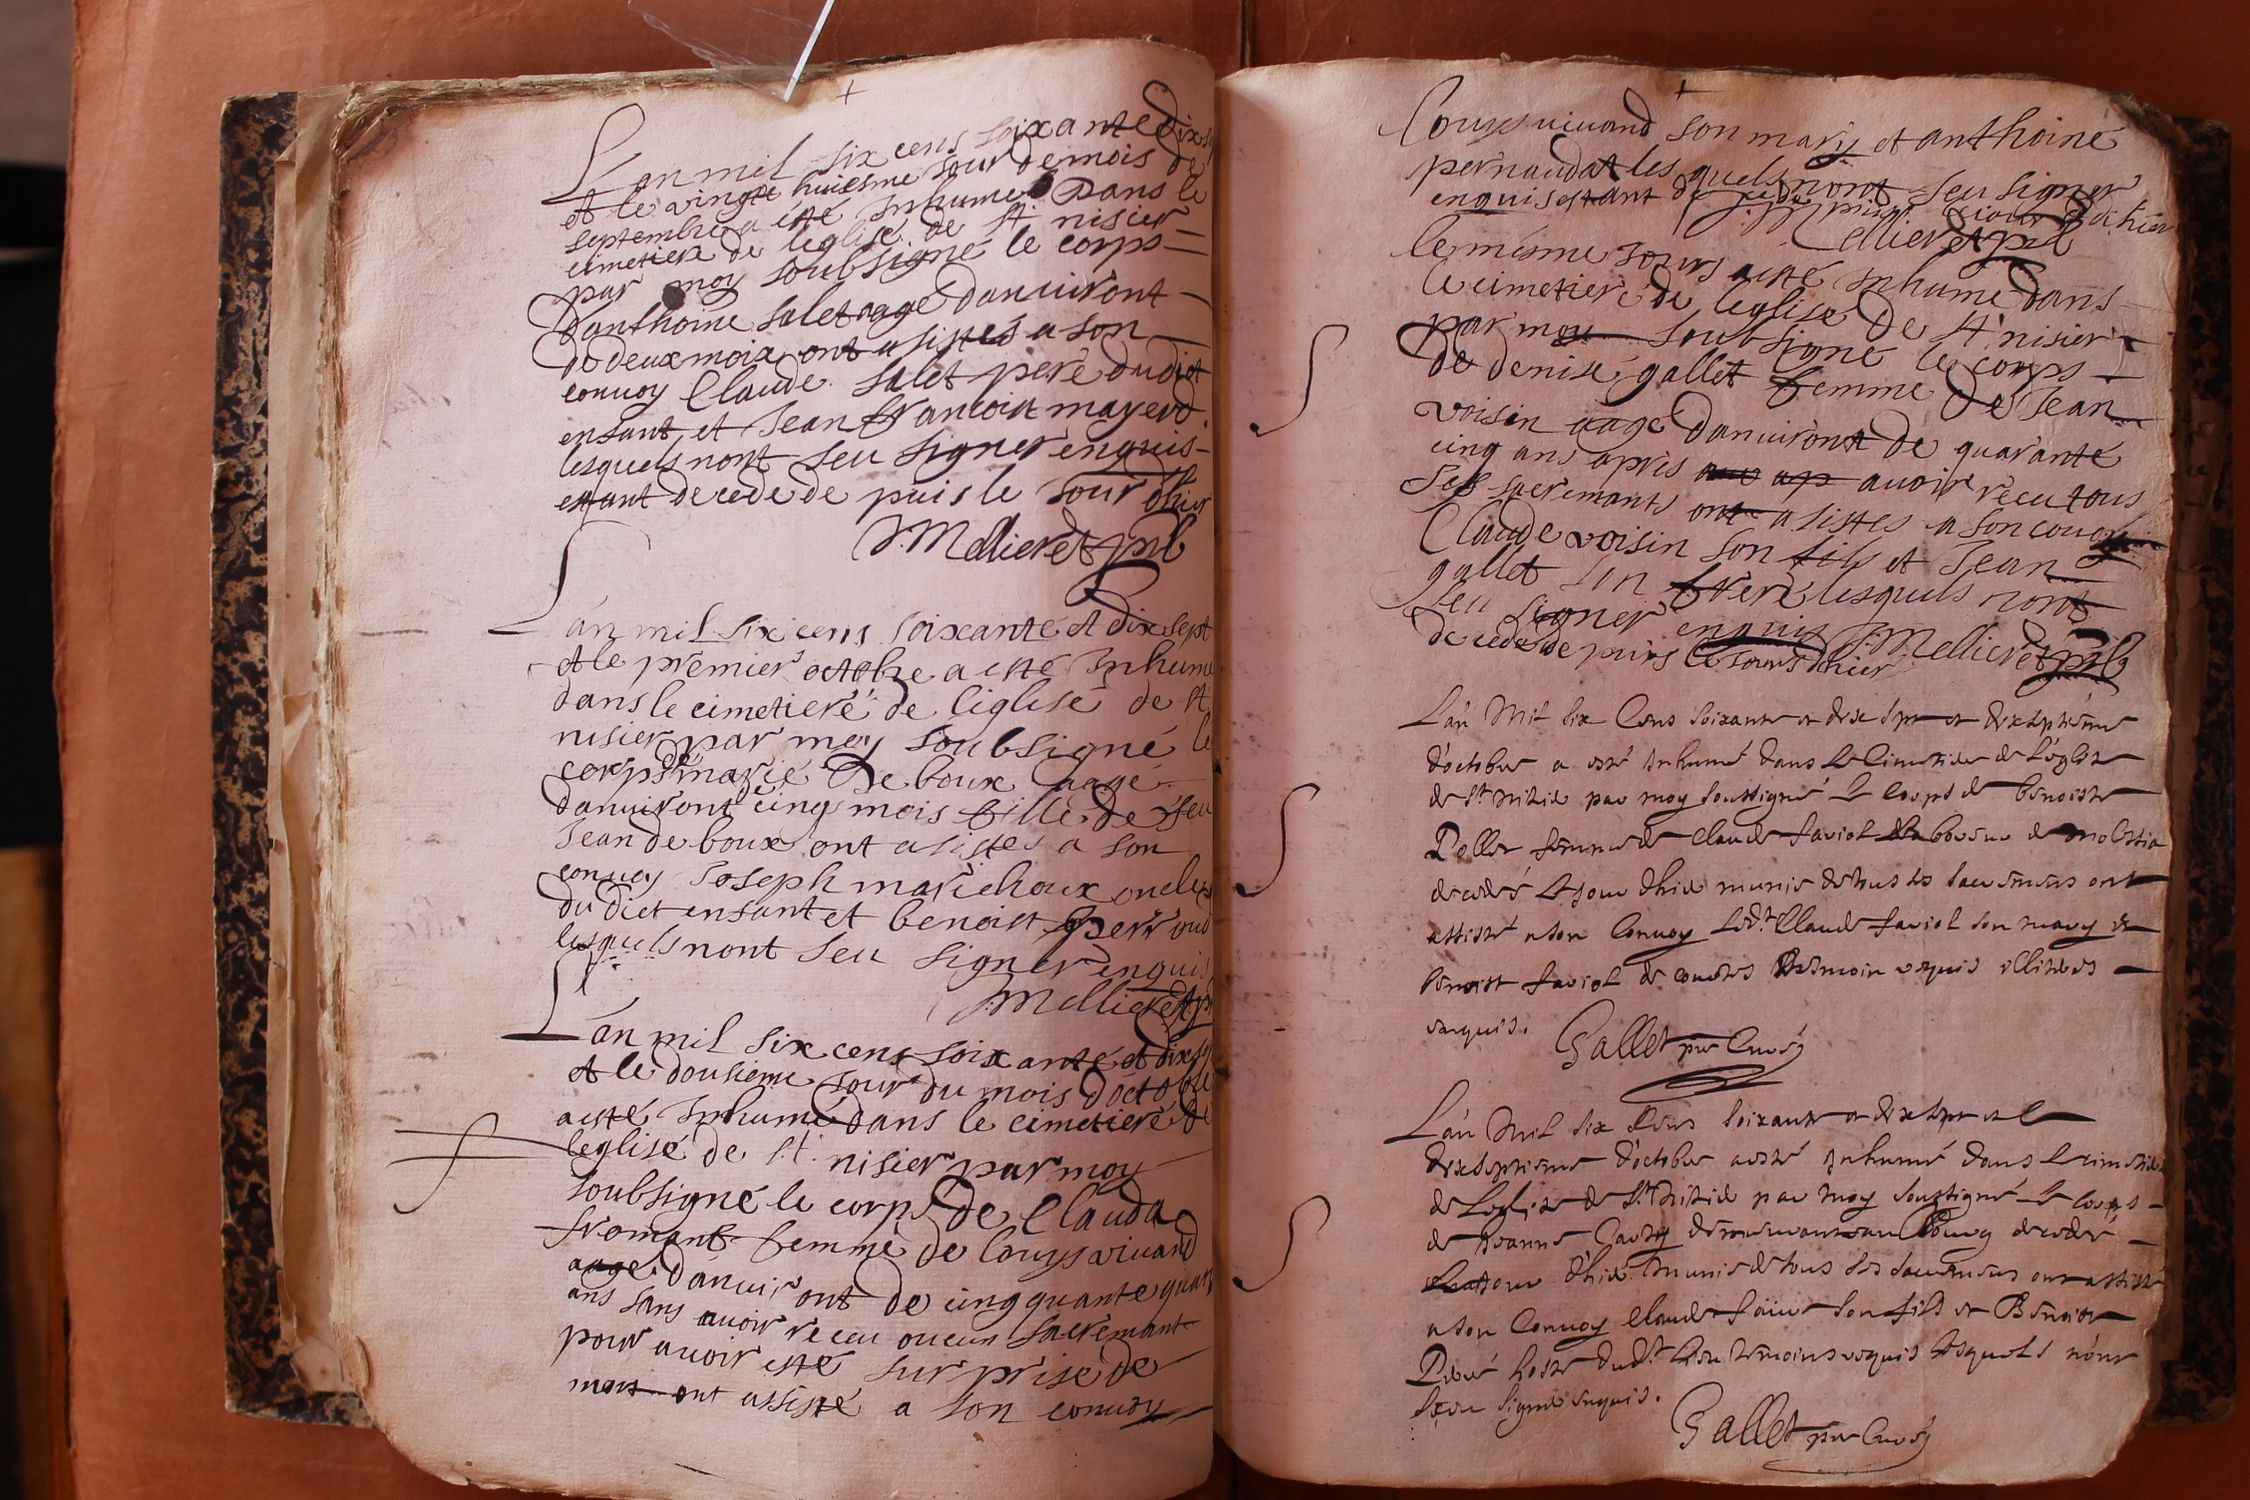 Lan mil six cens soixante dix s
et le vingt huiesme Jour de mois de
septembre a esté Inhumé Dans le
cimetiere de leglise de St nisier
par moy soubsigné le corps
Danthoine salet aage danuiront
de deux moix ont asistés a son
conuoy Claude salet pere dudict
enfant et Jean francoix mayeud
lesquels nont seu signer enquis
estant decede de puis le Jour dhier
J. Mellieret pbr
Lan mil six cens soixante et dix sept
et le premier octobre a esté Inhume
dans le cimetieré de leglisé de St
nisier par moy soubsigné le
corps de marie De boux aagé
danuiront cinq mois fille de feu
Jean de boux ont asistes a son
conuoy Joseph marichoux oncle
du dict enfant et benoist perroud
lesquels nont seu signer enquis
J. Mellieret pbr
Lan mil six cens soixante et dix sep
et le dousieme Jour du mois doctobre
a esté Inhumé dans le cimetieré de
leglisé de St nisier par moy
soubsigné le corps de Clauda
fromant femme de Louys viuand
aagé danuiront de cinqquante quatr
ans sans auoir receu oucun sacremant
pour auoir esté surprise de
mort ont assisté a son conuoy
Louys viuand son mary et anthoine
pernaudat les quels nont seu signer
enquis estant de cede depuis le iour dhier
J. Mellieret pbr
le mesme Jours a esté Inhumé dans
le cimetieré de leglisé De St nisier
par moy soubsigné le corps
de denisé gallet femme de Jean
voisin aagé danuiront de quaranté
cinq ans apres auoir receu tous
ses sacremants ont asistes a son couoy
Claude voisin son fils et Jean
gallet son freré lesquels nont
seu signer enquis J. Mellieret pbr
de cede de puis le Jours dhier
Lan Mil six Cens soixante et dix sept et dixseptiesme
doctobre a esté Inhumé dans le Cimetiere de Leglise
de St Nizier par moy soussigné le Corps de benoiste
femme de Claude faviol de
decedé le jour dhier munie de tous les sacremens ont
assisté a son Conuoy led.t Claude faviol son mary et
benoist faviol de tesmoin requis illiteres
enquis.
Gallet pre Curé
Lan Mil six Cens soixante et dix sept et le
dixseptiesme doctobre a esté Inhumé dans le cimetiere
de Leglise de St Nizier par moy soussigné le Corps
de Jeanne decedée
le jour dhier munie de tous ses sacremens ont assisté
a son Conuoy Claude son fils et Benoist
hoste dud.t lieu tesmoins requis lesquels nont
sceu signer enquis.
Gallet pre Curé